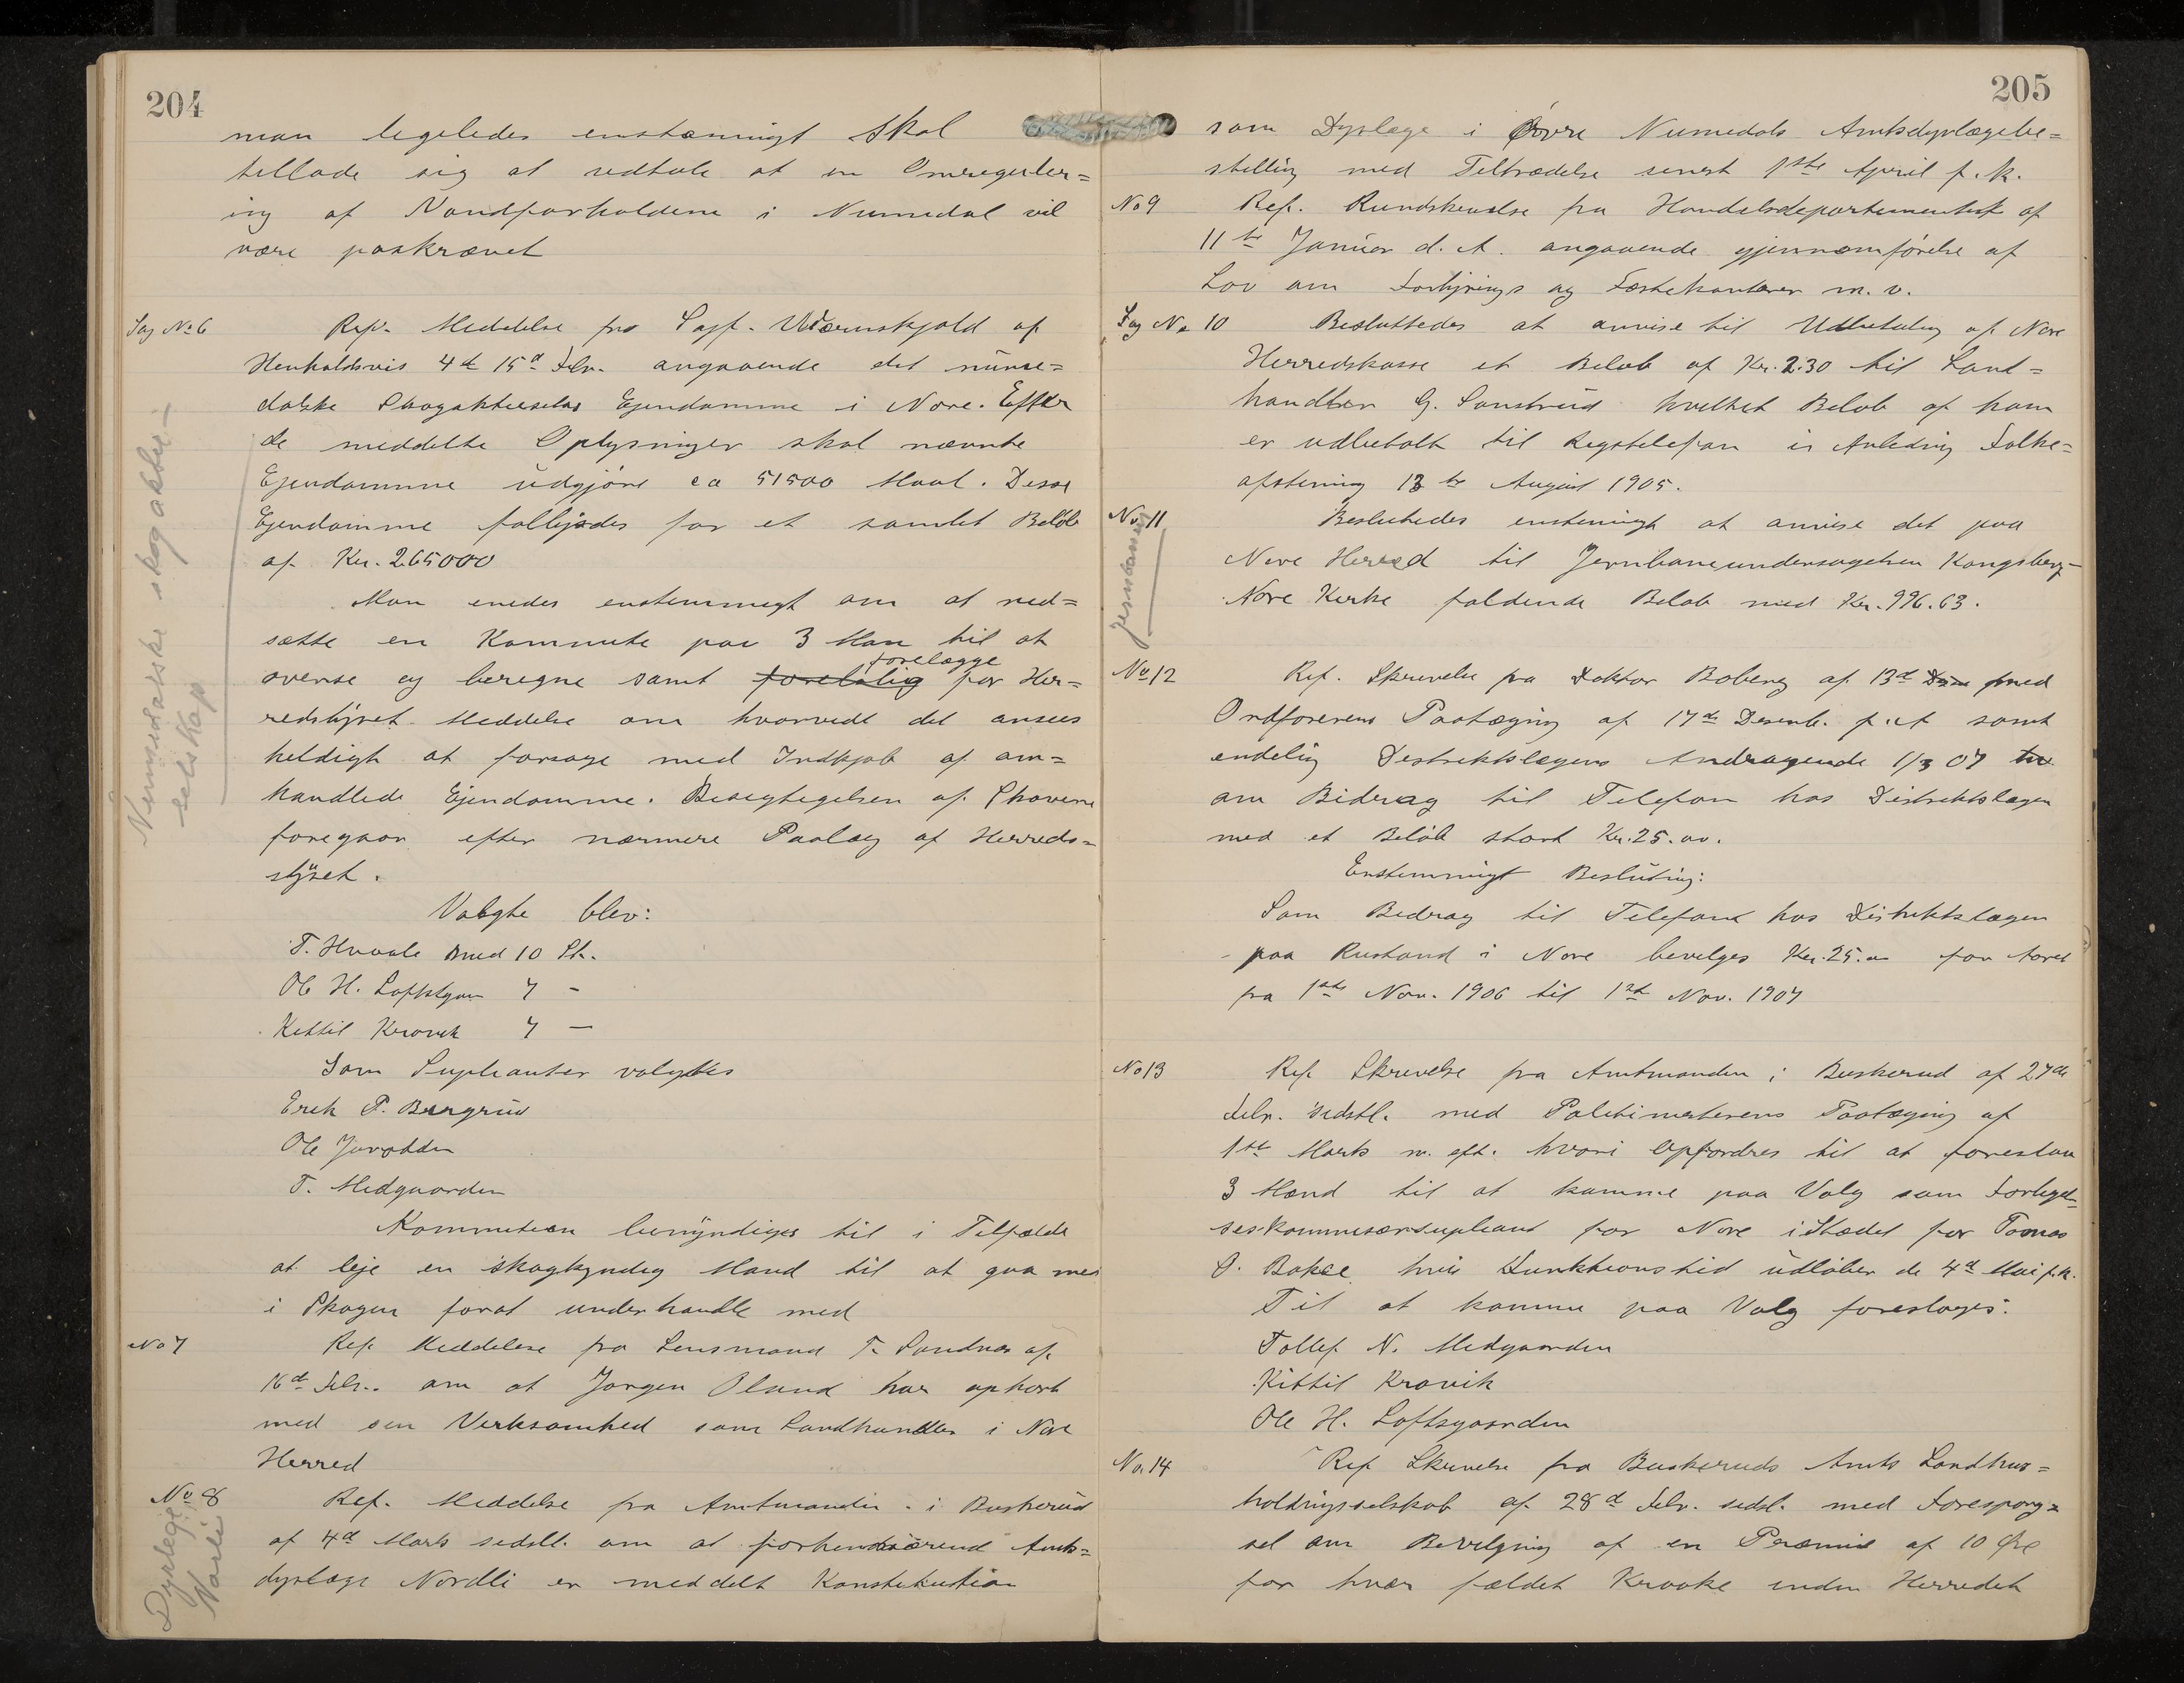 204
man legeledes enstæmmigt skal
tillade sig at udtale at en Omreguler=
ing af Vandforholdene i Numedal vil
være paakrævet
Sag No 6
Ref. Meddelse fra Sagf. af
Henholdsvis 4de 15d Febr. angaaende det nume=
dalske Skogaktieselas Ejendomme i Nore. Efter
de meddelte Oplysninger skal nævnte
Ejendomme udgjøre ca 51500 Maal. Desse
Ejendomme falbydes for et samlet Beløb
af Kr. 265000
Numedalske skogaktie-
selskap
Man enedes enstemmigt om at ned=
sætte en Kommite paa 3 Man til at
overse og beregne samt forelølig forelægge for Her=
redstyret Meddelse om hvorvidt det ansees
heldigt at forsøge med Indkjøb af om=
handlede Ejendomme. Besegtegelsen af Skovene
foregaar efter nærmere Paalæg af Herreds=
styret.
Valgte blev:
T. Hvaale med 10 St.
Ole H. Loftsgar 7 -
Kittil Kravik 7 -
Som Supleanter valgtes
Erik P. Bergrud
Ole
T. Medgaarden
Kommiteen bemyndiges til i Tilfælde
at leje en skogkyndig Mand til at gaa med
i Skogen forat underhandle med
No 7
Ref. Meddelelse fra Lensmand T. Sandnes af
16de Febr. om at Jørgen Øland har ophørt
med sin Verksomhed som Landhandler i Nore
Herred
No 8
Ref. Meddelse fra Amtmanden i Buskerud
af 4d Marts sidstl. om at forhenværend Amts=
dyrlæge Nordli er meddelt Konstitution
Dyrlege
205
som Dyrlæge i Øvre Numedals Amtsdyrlægebe=
stilling med Tiltrædelse senest 1ste April f. k.
No 9
Ref. Rundskrivelse fra Handelsdepartementet af
11te Januar d. A. angaaende gjennomførelse af
Lov om Forhyrings og Fæstekontorer m. v.
Sag No 10
Besluttedes at anvise til Udbetaling af Nore
Herredskasse et Beløb af Kr. 2.30 til Land=
handler G. Sønstrud hvilket Beløb af ham
er udbetalt til Rigstelefon i Anledning Folke=
afstemning 13te August 1905.
No 11
Jernbanen
Besluttedes enstemigt at anvise det paa
Nore Herred til Jernbaneundersøgelsen Kongsberg-
Nore Kirke faldende Beløb med Kr. 996.63.
No 12
Ref. Skrivelse fra Doktor Boberg af 13d med
Ordførerens Paategning af 17de Desemb. f. A samt
endelig Destriktslægens Andragende 1/3 07
om Bidrag til Telefon hos Distriktslægen
med et Beløb stort Kr. 25.00.
Enstemmigt Beslutning:
Som Bedrag til Telefon hos Distriktslægen
paa Rustand i Nore bevilges Kr. 25.00 for Aaret
fra 1ste Nov. 1906 til 1ste Nov. 1907
No 13
Ref Skrivelse fra Amtmanden i Buskerud af 27de
Febr. sidstl. med Politimesterens Paategning af
1ste Marts n. eft. hvori opfordres til at foreslaa
3 Mænd til at komme paa Valg som Forligel=
seskommisærsupleant for Nore istædet for Tomas
O. Bakke hvis Funktionstid udløber de 4d Mai f.k.
Til at komme paa Valg foreslages:
Tollef N. Medgaarden
Kittil Kravik
Ole H. Loftsgaarden
No. 14
Ref Skrivelse fra Buskeruds Amts Landhus=
holdningsselskab af 28d Febr. sidstl. med Forespørg=
sel om Bevilgning af en Præmie af 10 Øre
for hver fældet Kraake inden Herredet